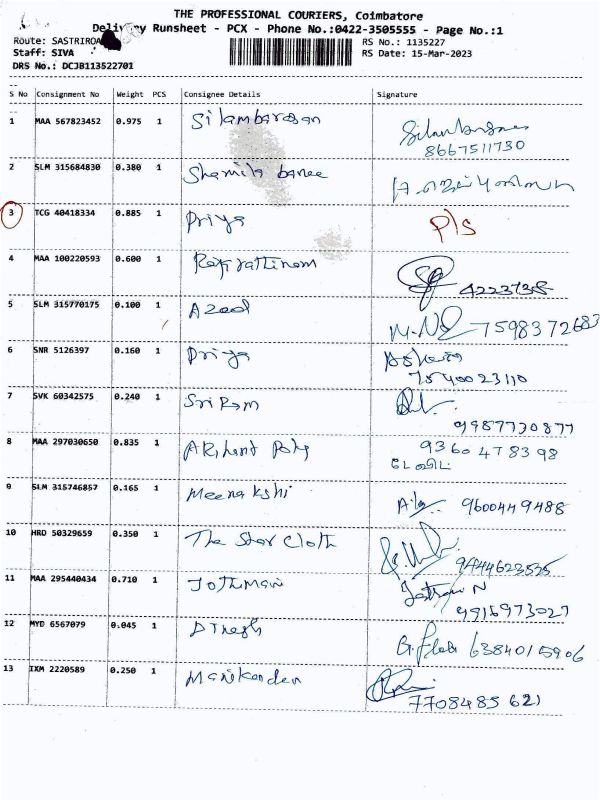 THE PROFESSIONAL COURIERS, Coimbatore
Delivery Runsheet - PCX - Phone No.:0422-3505555 - Page No.:1
Route: SASTRIROA
RS No.: 1135227
Staff: SIVA
RS Date: 15-Mar-2023
DRS No.: DCJB113522701
S No Consignment No Weight PCS Consignee Details Signature
1 MAA 567823452 0.975 1 Silambarasan
8667511730
2 SLM 315684830 0.380 1 Shamila banee
3 TCG 40418334 0.885 1 Priya P/S
4 MAA 100220593 0.600 1 4223738
5 SLM 315770175 0.100 1 Azeed 7598372683
6 SNR 5126397 0.160 1 Priya
7540023110
7 SVK 60342575 0.240 1 Sri Ram
9987730877
8 MAA 297030650 0.835 1 Arihant Poly 9360478398
டேவிட்
9 SLM 315746857 0.165 1 Meenakshi 9600449488
10 HRD 50329659 0.350 1 The Star Cloth
9444623535
11 MAA 295440434 0.710 1 Jothimani
9916973027
12 MYD 6567079 0.045 1 6384015906
13 IXM 2220589 0.250 1 Manikanden
7708485621